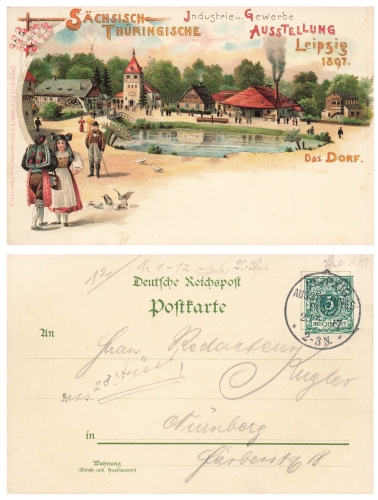 SÄCHSISCH-
THÜRINGISCHE
Industrie u. Gewerbe
AUSSTELLUNG
Leipzig
1897.
Das Dorf.
Deutsche Reichspost
Postkarte
An
Herrn Redacteur
Kugler
in Nürnberg
Färberstr. 18
Wohnung
(Straße und Hausnummer)
5
REICHSPOST
2-3N.